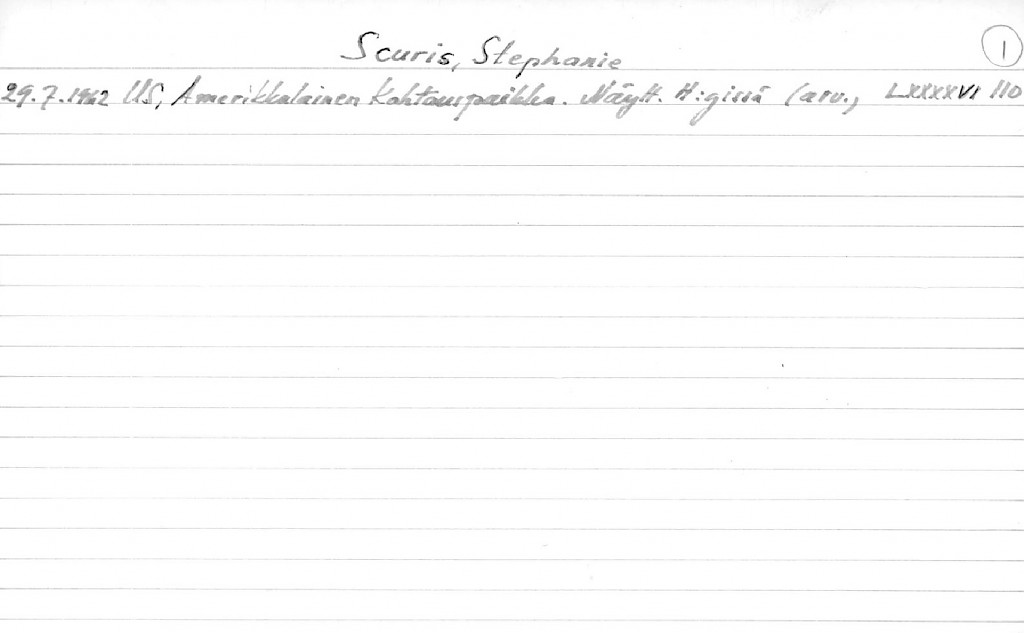 Scuris, Stephanie 1
29.7.1962 US, Amerikkalainen Kohtauspaikka. Näytt. H:gissä (arv., LXXXXVI 110